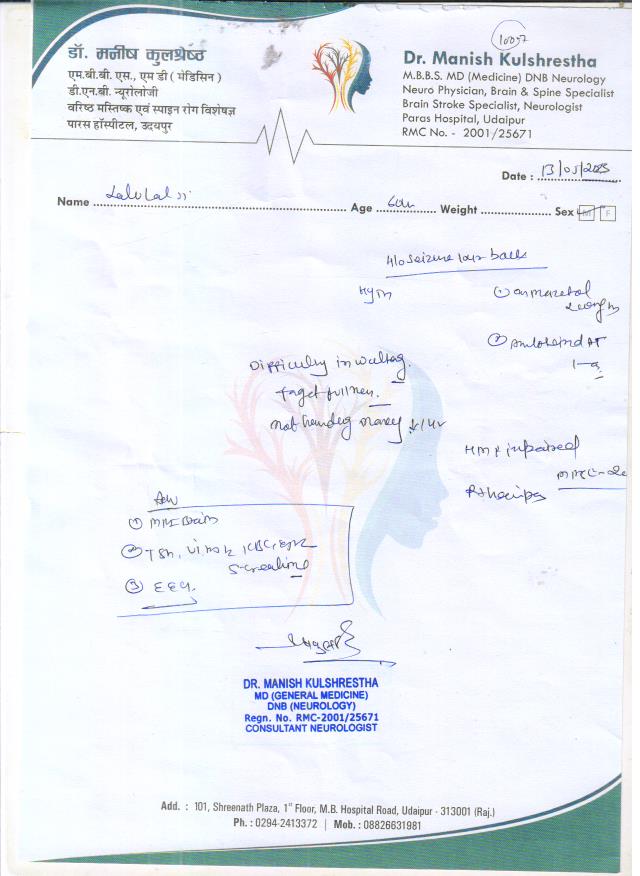 10057
डॉ. मनीष कुलश्रेष्ठ
एम.बी.बी. एस., एम डी ( मेडिसिन )
डी.एन.बी. न्यूरोलोजी
वरिष्ठ मस्तिष्क एवं स्पाइन रोग विशेषज्ञ
पारस हॉस्पीटल, उदयपुर
Dr. Manish Kulshrestha
M.B.B.S. MD (Medicine) DNB Neurology
Neuro Physician, Brain & Spine Specialist
Brain Stroke Specialist, Neurologist
Paras Hospital, Udaipur
RMC No. - 2001/25671
Date : 13/05/2023
Name Lalulal ji Age 60 Weight Sex M F
H/o seizure
HTN
①
② AT
Difficulty in walking.
not handling money
HMF impaired
Adv
① MRI Brain
② TSH, Vit B12, CBC,
S. creatinine
③ EEG.
DR. MANISH KULSHRESTHA
MD (GENERAL MEDICINE)
DNB (NEUROLOGY)
Regn. No. RMC-2001/25671
CONSULTANT NEUROLOGIST
Add. : 101, Shreenath Plaza, 1st Floor, M.B. Hospital Road, Udaipur - 313001 (Raj.)
Ph. : 0294-2413372 | Mob. : 08826631981